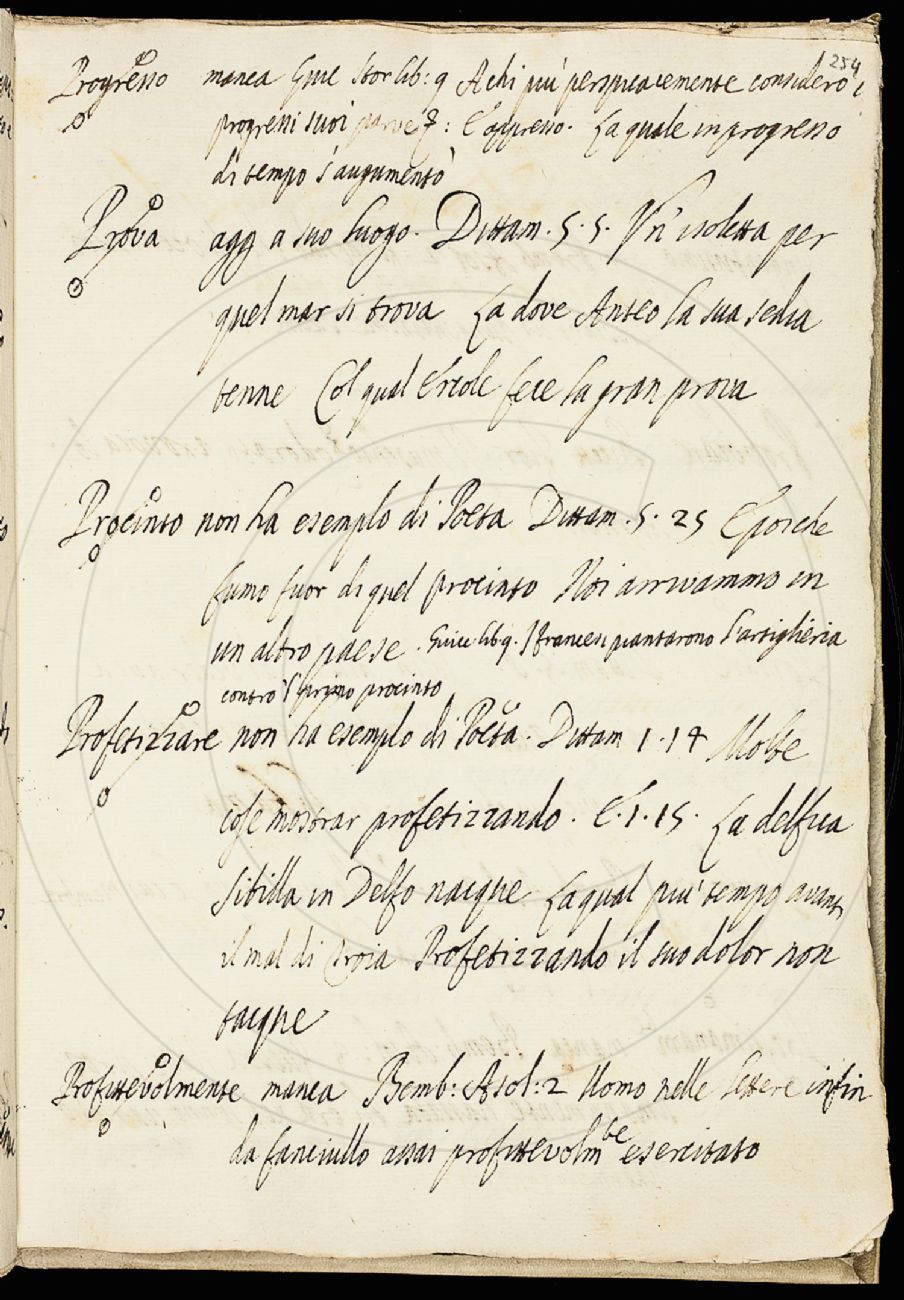 254
Progresso manca Guic Stor lib: 9 A chi più perspicacemente considerò i
progressi suoi parve &: E appresso. La quale in progresso
di tempo s'augumentò
Prova agg a suo luogo. Dittam. 5. 5. Vn' isoletta per
quel mar si trova La dove Anteo la sua sedia
tenne Col qual Ercole fece la gran prova
Procinto non ha esempio di Poeta Dittam. 5. 25 E poscia che
fumo fuor di quel procinto Noi arrivammo in
un altro paese. Guicc lib 9. I francesi piantarono l'artiglieria
contro 'l primo procinto
Profetizzare non ha esempio di Poeta. Dittam 1. 14 Molte
cose mostrar profetizzando. E. 1. 15. La delfica
Sibilla in Delfo nacque La qual più tempo avanti
il mal di Troia Profetizzando il suo dolor non
tacque
Profittevolmente manca Bemb: Asol: 2 Uomo nelle lettere infin
da fanciullo assai profittevolmte esercitato